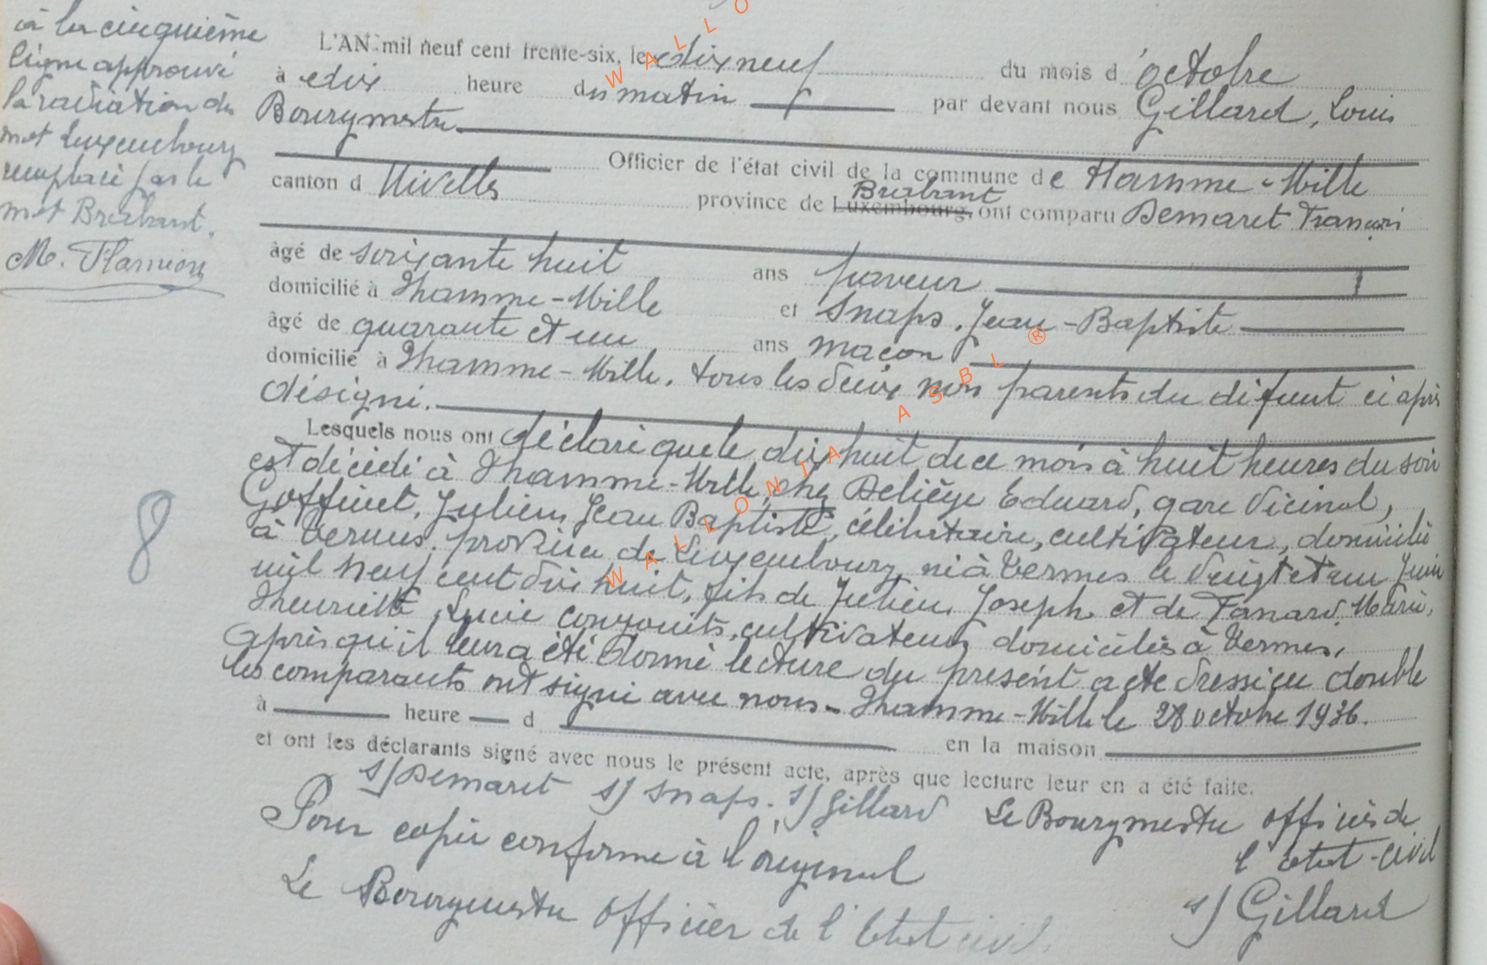 à la cinquième
ligne approuvé
la radiation du
mot Luxembourg
remplacé par le
mot Brabant.
L'AN mil neuf cent trente-six, le dix neuf du mois d'octobre
à dix heure du matin par devant nous Gillard, Louis
Bourgmestre
Officier de l'état civil de la commune de Hamme-Mille
canton d Nivelles province de Luxembourg, Brabant ont comparu Demaret François
âgé de soixante huit ans paveur
domicilié à Hamme-Mille et Snaps, Jean-Baptiste
âgé de quarante et un ans maçon
domicilié à Hamme-Mille, tous les deux non parents du défunt ci après
désigné.
Lesquels nous ont déclaré que le dix huit de ce mois à huit heures du soir
est décédé à Hamme-Mille, chez Deliège Edouard, gare vicinal,
Goffinet, Julien, Jean Baptiste, célibataire, cultivateur, domicilié
à province de Luxembourg, né à le vingt et un Juin
mil neuf cent dix huit, fils de Julien, Joseph et de Fanard, Marie,
Henriette, Lucie conjoints, cultivateurs domiciliés à
Après qu'il leur a été donné lecture du présent acte dressé en double
les comparants ont signé avec nous - Hamme-Mille le 28 octobre 1936.
à heure d en la maison
et ont les déclarants signé avec nous le présent acte, après que lecture leur en a été faite.
s/ Demaret s/ Snaps. s/ Gillard Le Bourgmestre officier de
l'état-civil
Pour copie conforme à l'original
s/ Gillard
Le Bourgmestre officier de l'état civil
8
WALLONIA ASBL ®
WALLO